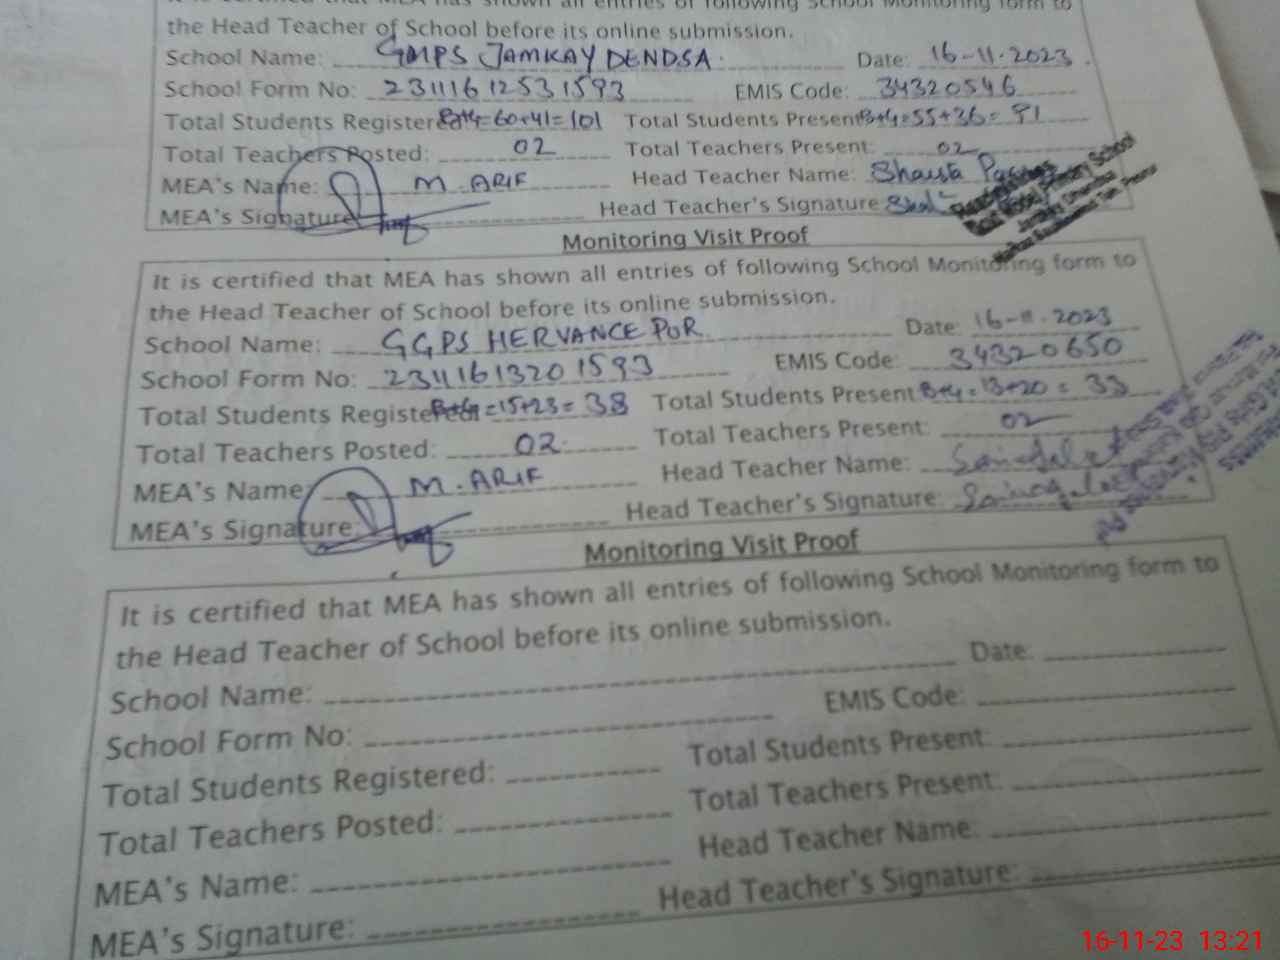 It is certified that MEA has shown all entries of following School Monitoring form to
the Head Teacher of School before its online submission.
School Name: GMPS JAMKAY DENDSA. Date: 16-11-2023.
School Form No: 23111612531593 EMIS Code: 34320546
Total Students Registered B+G=60+41=101 Total Students Present B+G=55+36=91
Total Teachers Posted: 02 Total Teachers Present: 02
MEA's Name: M. ARIF Head Teacher Name: Shaista
MEA's Signature Head Teacher's Signature
Primary School
Monitoring Visit Proof
It is certified that MEA has shown all entries of following School Monitoring form to
the Head Teacher of School before its online submission.
School Name: GGPS HERVANCE POR. Date: 16-11-2023
School Form No: 23111613201593 EMIS Code: 34320650
Total Students Registered B+G=15+23=38 Total Students Present B+G=13+20=33
Total Teachers Posted: 02 Total Teachers Present: 02
MEA's Name M. ARIF Head Teacher Name:
MEA's Signature: Head Teacher's Signature:
Monitoring Visit Proof
It is certified that MEA has shown all entries of following School Monitoring form to
the Head Teacher of School before its online submission.
School Name: Date:
School Form No: EMIS Code:
Total Students Registered: Total Students Present:
Total Teachers Posted: Total Teachers Present:
MEA's Name: Head Teacher Name:
MEA's Signature: Head Teacher's Signature:
16-11-23 13:21